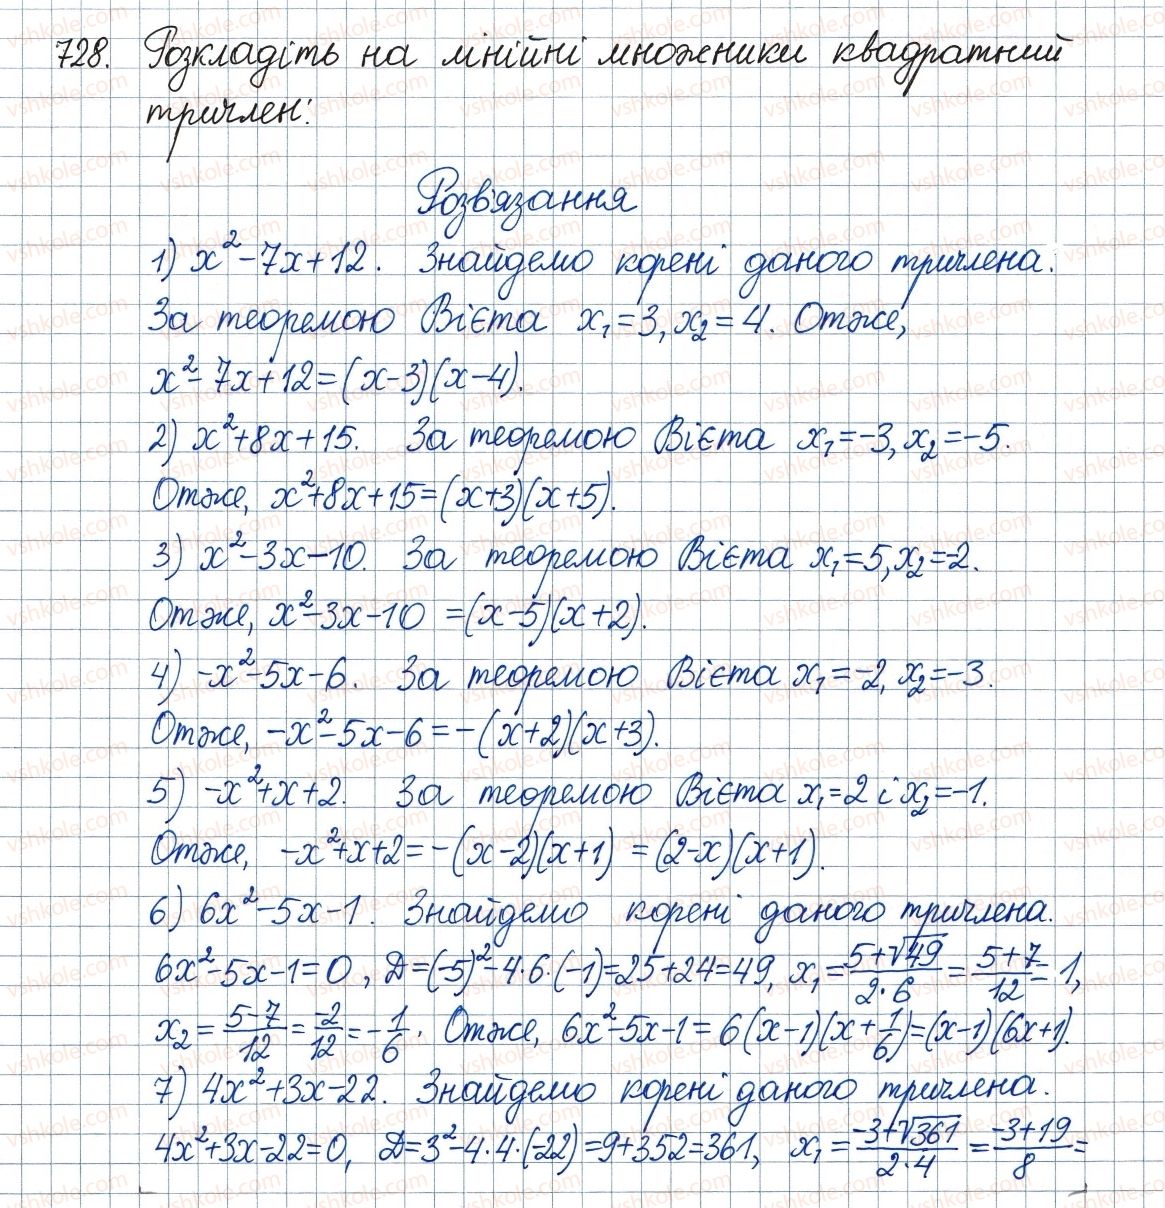 728. Розкладіть на лінійні множники квадратний
тричлен:
Розв'язання
1) x² - 7x + 12. Знайдемо корені даного тричлена.
За теоремою Вієта x₁ = 3, x₂ = 4. Отже,
x² - 7x + 12 = (x - 3)(x - 4).
2) x² + 8x + 15. За теоремою Вієта x₁ = -3, x₂ = -5.
Отже, x² + 8x + 15 = (x + 3)(x + 5).
3) x² - 3x - 10. За теоремою Вієта x₁ = 5, x₂ = -2.
Отже, x² - 3x - 10 = (x - 5)(x + 2).
4) -x² - 5x - 6. За теоремою Вієта x₁ = -2, x₂ = -3.
Отже, -x² - 5x - 6 = -(x + 2)(x + 3).
5) -x² + x + 2. За теоремою Вієта x₁ = 2 і x₂ = -1.
Отже, -x² + x + 2 = -(x - 2)(x + 1) = (2 - x)(x + 1).
6) 6x² - 5x - 1. Знайдемо корені даного тричлена.
6x² - 5x - 1 = 0, Д = (-5)² - 4·6·(-1) = 25 + 24 = 49, x₁ = (5 + √49)/(2·6) = (5 + 7)/12 = 1,
x₂ = (5 - 7)/12 = -2/12 = -1/6. Отже, 6x² - 5x - 1 = 6(x - 1)(x + 1/6) = (x - 1)(6x + 1).
7) 4x² + 3x - 22. Знайдемо корені даного тричлена.
4x² + 3x - 22 = 0, Д = 3² - 4·4·(-22) = 9 + 352 = 361, x₁ = (-3 + √361)/(2·4) = (-3 + 19)/8 =